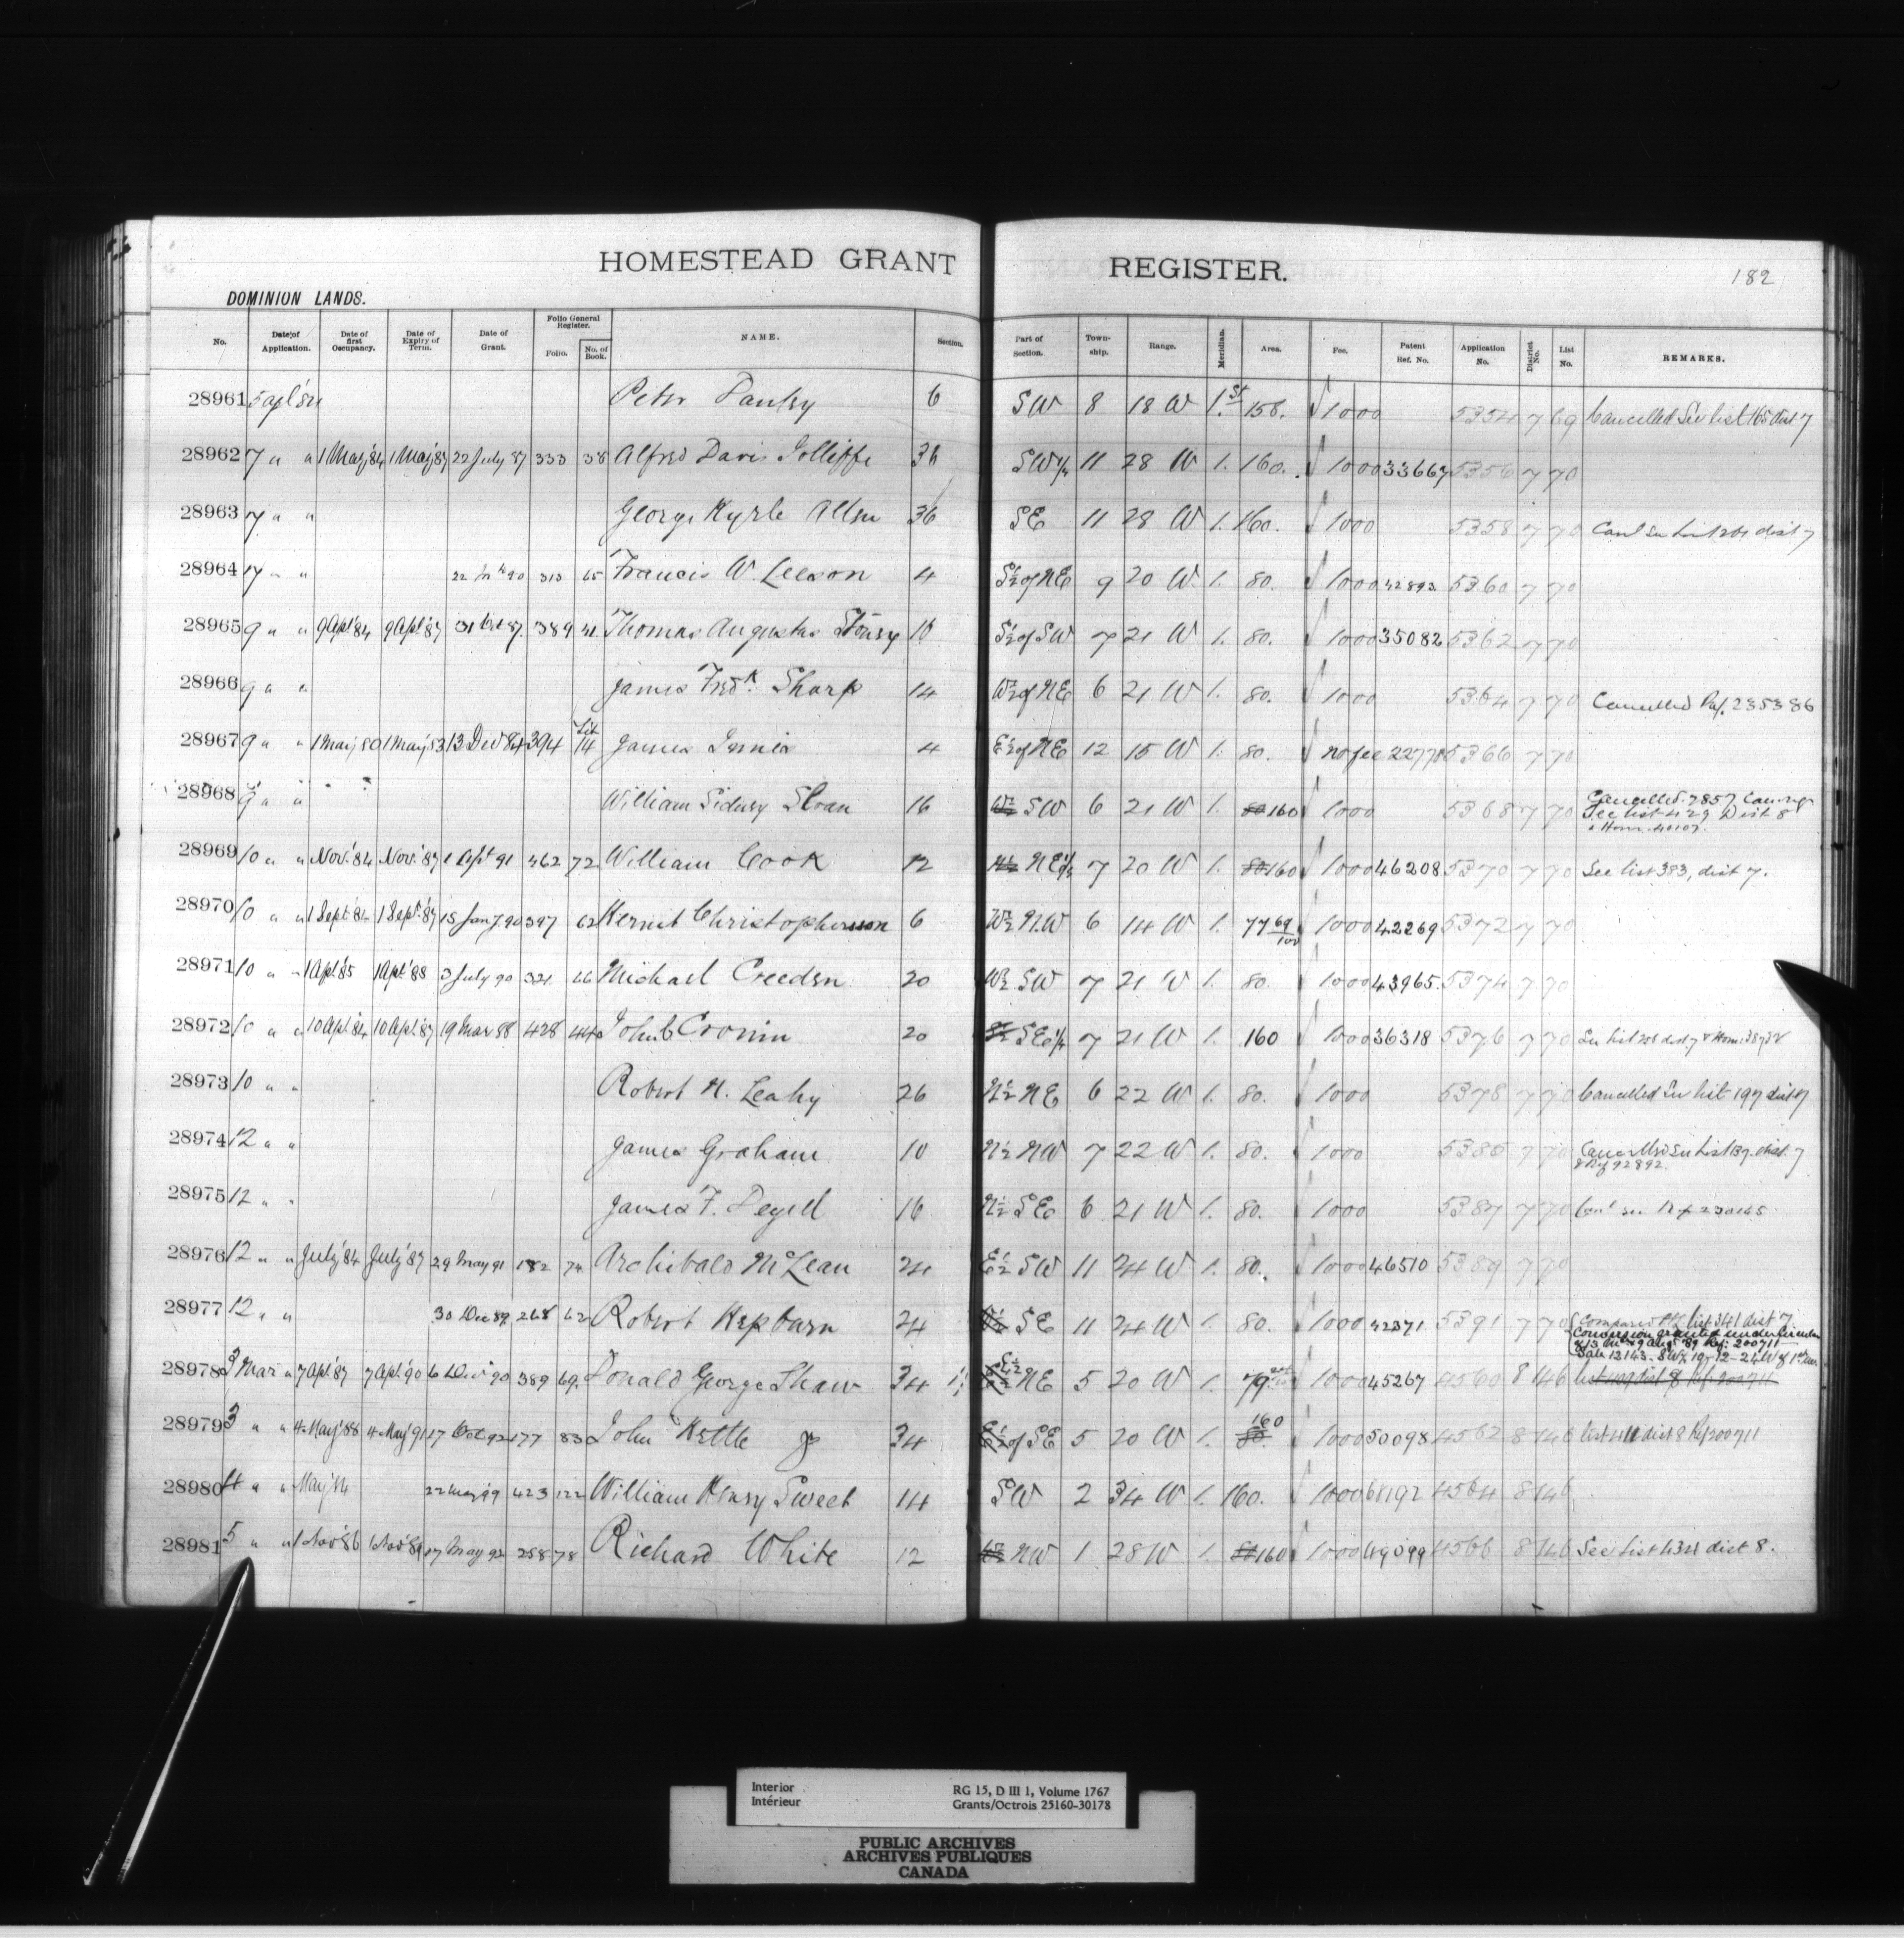 HOMESTEAD GRANT REGISTER.
182
DOMINION LANDS.
No. Date of Application. Date of first Occupancy. Date of Expiry of Term. Date of Grant. Folio General Register. Folio. No. of Book. NAME. Section. Part of Section. Town-ship. Range. Meridian. Area. Fee. Patent Ref. No. Application No. District No. List No. REMARKS.
28961 5 apl '84 Peter 6 SW 8 18 W 1.st 158. 1000 5354 7 69 Cancelled See list 165 dist 7
28962 7 " " 1 May '84 1 May '87 22 July 87 333 38 Alfred Davis Jolliffe 36 SW¼ 11 28 W 1. 160. 1000 33667 5356 7 70
28963 7 " " George Kyrle Allen 36 SE 11 28 W 1. 160. 1000 5358 7 70 dist 7
28964 7 " " 90 313 65 Francis W. Leeson 4 S½ of NE 9 20 W. 1. 80. 1000 42893 5360 7 70
28965 9 " " 9 Apl '84 9 Apl '87 31 Oct 87. 389 41. Thomas Augustus 18 S½ of SW 7 21 W 1. 80. 1000 35082 5362 7 70
28966 9 " " James Fredk. Sharp 14 W½ of NE 6 21 W 1. 80. 1000 5364 7 70 Cancelled Ref. 235386
28967 9 " " 1 May 80 1 May '83 13 Dec 84 394 Lit 14 James Innis 4 E½ of NE 12 15 W 1. 80. no fee 5366 7 70
28968 9 " " William Sidney Sloan 16 W½ SW 6 21 W 1. 80 160 1000 5368 7 70 Cancelled. 7857
See list 429 Dist 8
28969 10 " " Nov. '84 Nov. '87 1 Apl 91 462 72 William Cook 12 NE¼ 7 20 W 1. 80 160 1000 46208 5370 7 70 See list 383, dist 7.
28970 10 " " 1 Sept '84 1 Sept. '87 15 Jany. 90 397 62 Christopherson 6 W½ N.W 6 14 W 1. 77 69/100 1000 42269 5372 7 70
28971 10 " " 1 Apl '85 1 Apl '88 3 July 90 321 66 Michael Creeden 20 W½ SW 7 21 W 1. 80. 1000 43965. 5374 7 70
28972 10 " " 10 Apl '84 10 Apl. '87 19 Mar 88 428 44 John C Cronin 20 SE¼ 7 21 W 1. 160 1000 36318 5376 7 70
28973 10 " " Robert N. Leahy 26 N½ NE 6 22 W 1. 80. 1000 5378 7 70 Cancelled See list 197 dist 7
28974 12 " " James Graham 10 N½ NW 7 22 W 1. 80. 1000 5385 7 70 Cancelled See List 139. dist. 7
& Ref 92892.
28975 12 " " James F. Deyell 16 N½ SE 6 21 W 1. 80. 1000 5387 7 70 Ref 230145
28976 12 " " July '84 July '87 29 May 91 182 74 Archibald McLean 24 E½ SW 11 24 W 1. 80. 1000 46510 5389 7 70
28977 12 " " 30 Dec 89 268 62 Robert Hepburn 24 SE 11 24 W 1. 80. 1000 42371 5391 7 70 list 341 dist 7.
Conversion granted under
Aug '89 Ref. 200711
Sale 12143. SW¼ 19-12-24 W of 1st Mer.
28978 3 Mar " 7 Apl '87 7 Apl '90 6 Dec 90 389 69. Donald George Shaw 34 NE 5 20 W 1. 79 1000 45267 4560 8 146 list 409 dist 8 Ref 200711
28979 3 " " 4 May '88 4 May '91 17 Oct 92 177 83 John Kettle Jr 34 E½ of SE 5 20 W 1. 160 80. 1000 50098 4562 8 146 list 411 dist 8 Ref 200711
28980 4 " " May '84 22 May 99 423 122 William Henry Sweet 14 SW 2 34 W 1. 160. 1000 68192 4564 8 146
28981 5 " " 1 Nov '86 1 Nov '89 17 May 92 258 78 Richard White 12 W½ NW 1 28 W 1. 80 160 1000 49099 4566 8 146 See List 434 dist 8.
Interior
Intérieur
RG 15, D III 1, Volume 1767
Grants/Octrois 25160-30178
PUBLIC ARCHIVES
ARCHIVES PUBLIQUES
CANADA